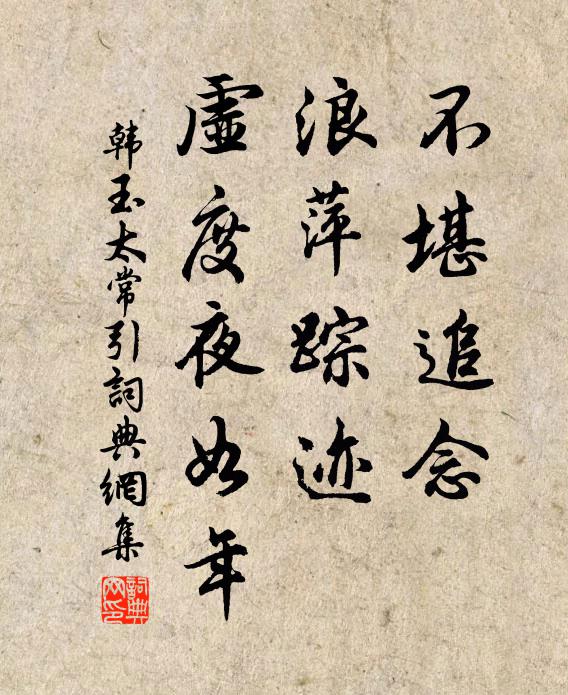 不堪追念
浪萍踪迹
虚度夜如年
韩玉太常引詞典網集
詞典网印